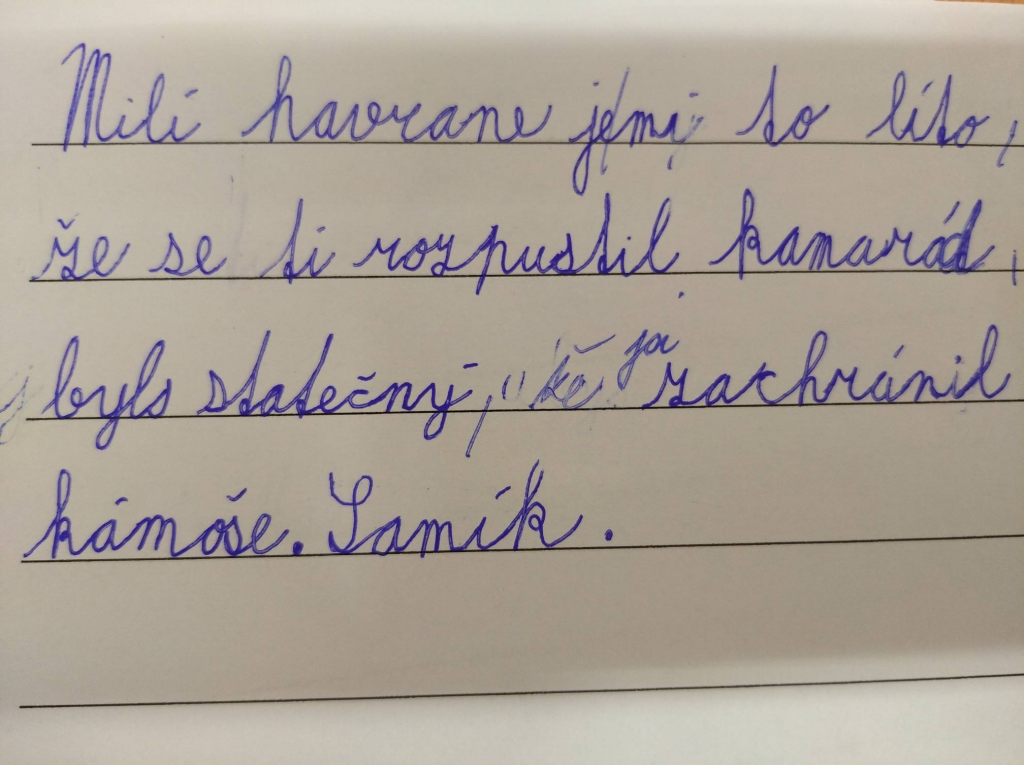 Milí havrane je mi to líto,
že se ti rozpustil kamarád,
byls statečný, já zachránil
kámoše. Samík.